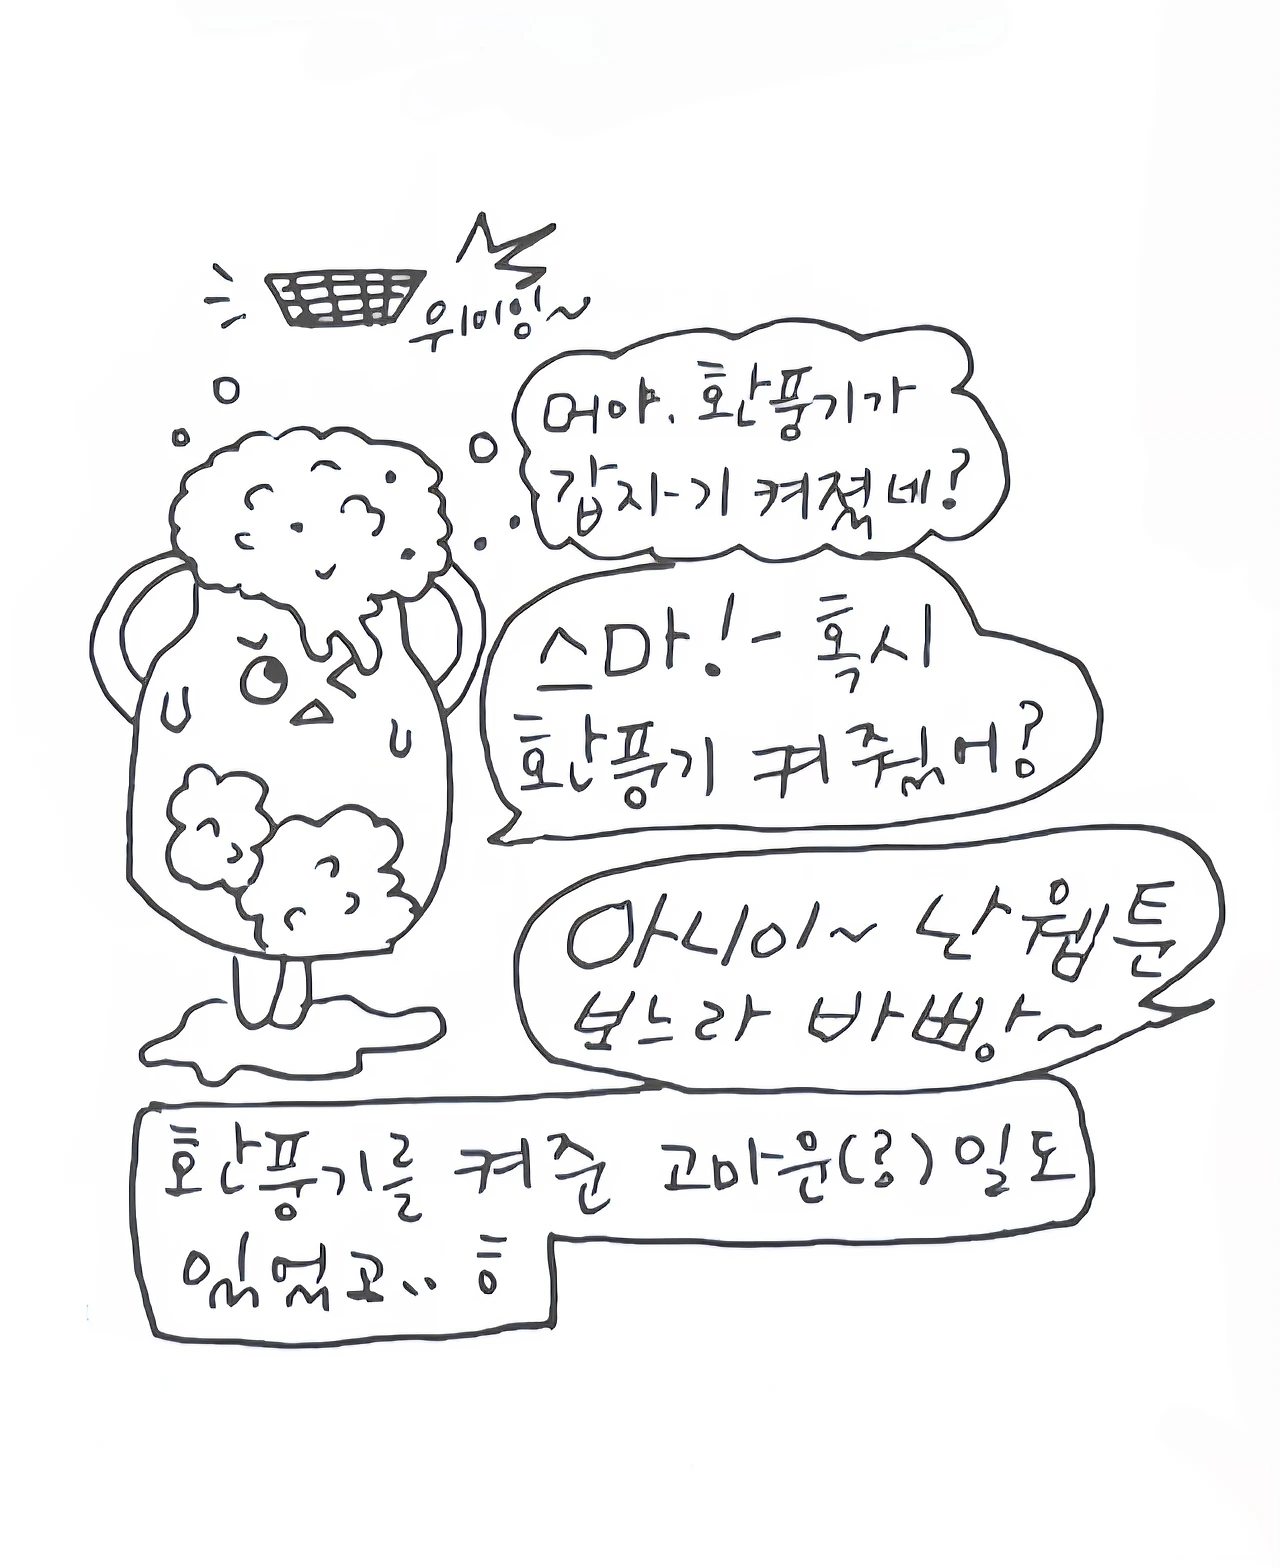 위이잉~
머야. 환풍기가
갑자-기 켜졌네?
스마!- 혹시
환풍기 켜줬어?
아니이~ 난 웹툰
보느라 바빴아~
환풍기를 켜준 고마운(?) 일도
있었고.. ㅎ